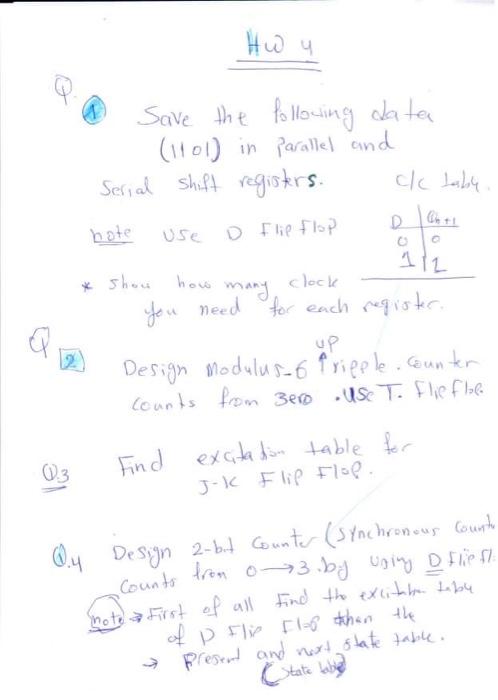 HW 4
Q.
1 Save the following data
(1101) in parallel and
Serial shift registers. c/c table.
note USE D Flip Flop
D | Qn+1
0 | 0
1 | 1
* show how many clock
you need for each register.
Q
2 Design Modulus-6 ↑ up ripple counter
counts from zero . USE T. Flip flop.
Q3 Find excitation table for
J-K Flip Flop.
Q.4 Design 2-bit counter (synchronous count
counts from 0 → 3 by using D flip fl.
note → First of all find the excitation table
of D Flip Flop then the
→ Present and next state table.
(state table)